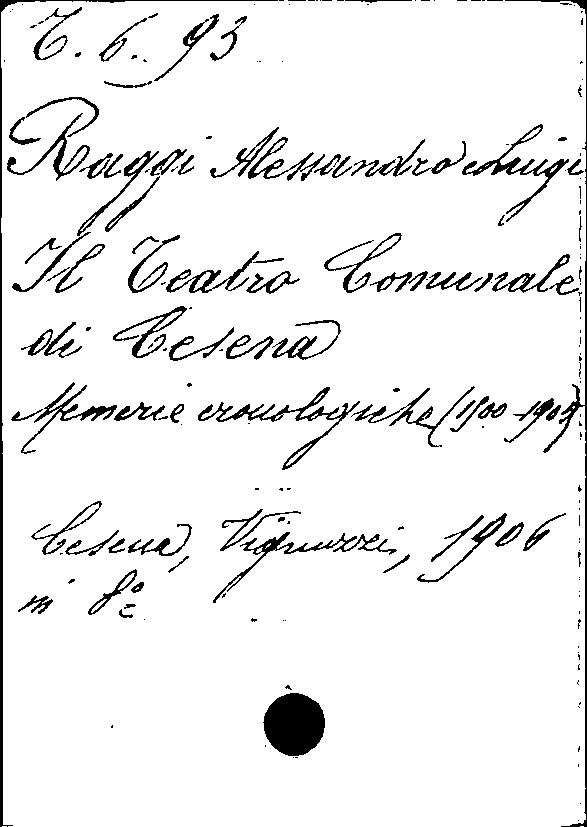 T. 6. 93
Raggi Alessandro Luigi
Il Teatro Comunale
di Cesena
Memorie cronologiche (1500-1905)
Cesena, Vignuzzi, 1906
in 8°